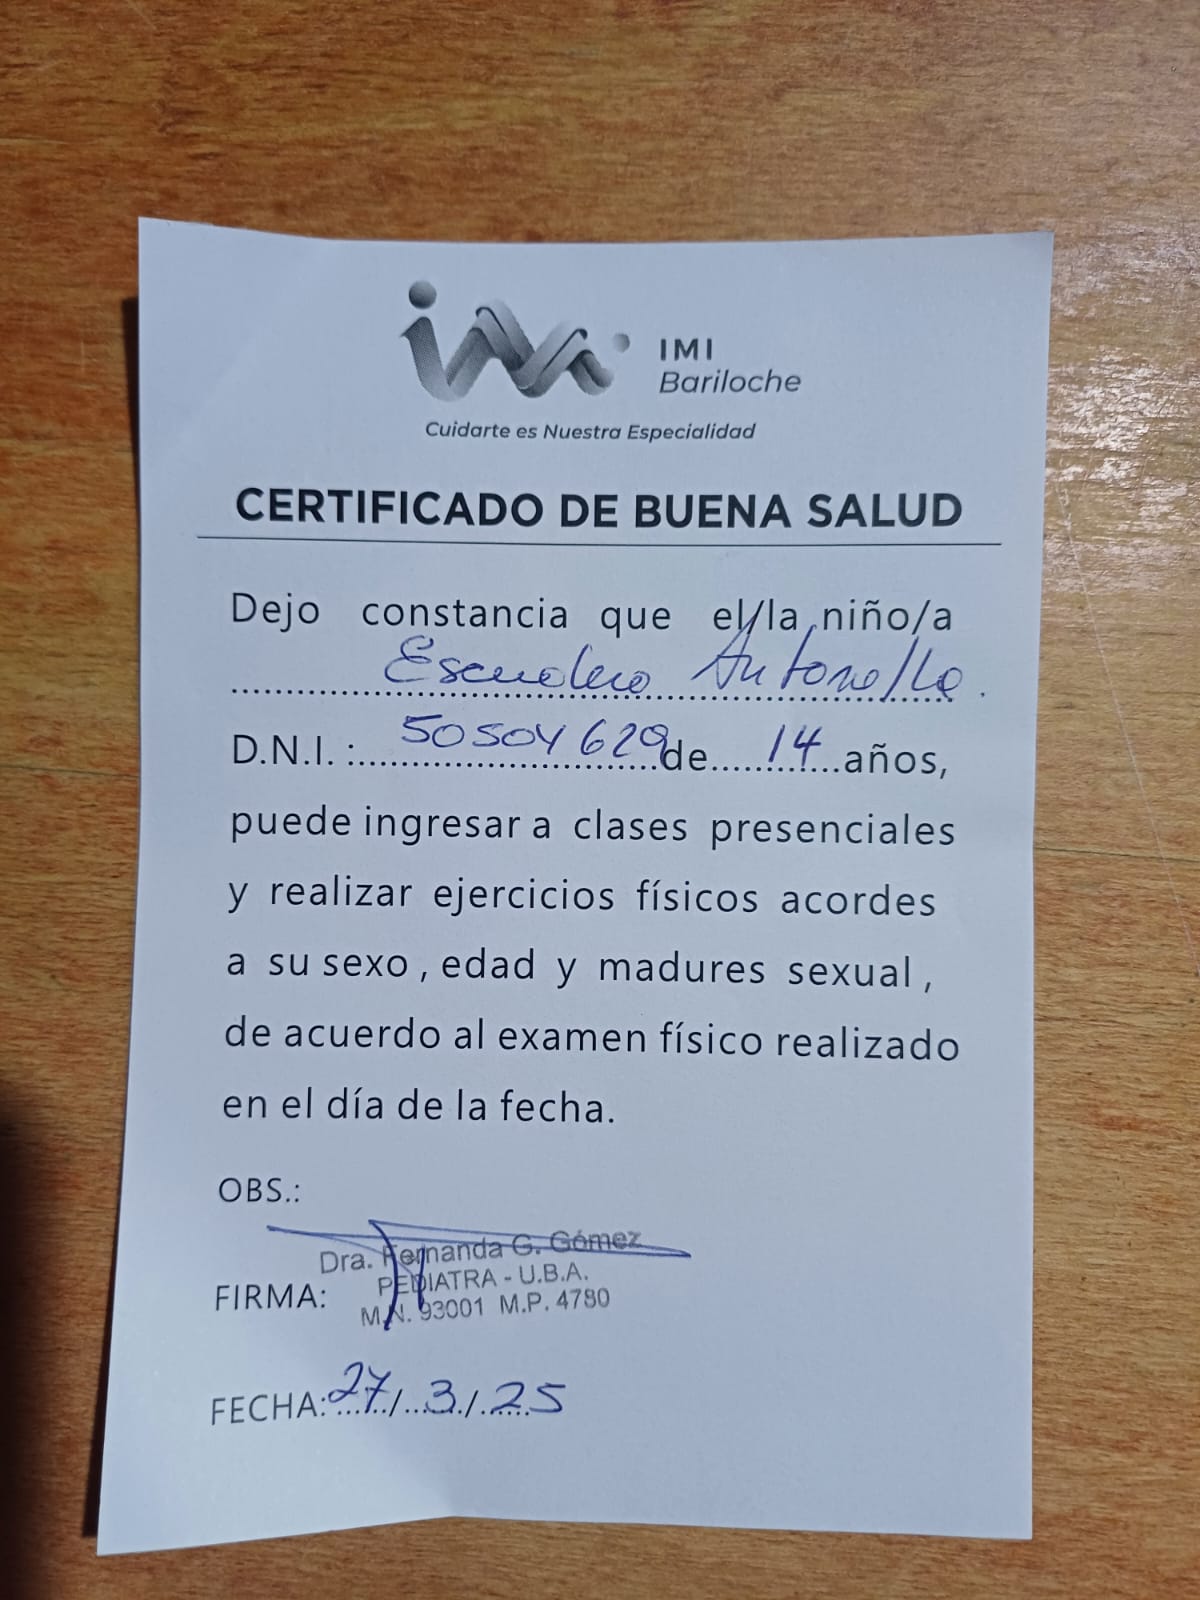 imi
IMI
Bariloche
Cuidarte es Nuestra Especialidad
CERTIFICADO DE BUENA SALUD
Dejo constancia que el/la niño/a
Escudero Antonella.
D.N.I.: 50504629 de 14 años,
puede ingresar a clases presenciales
y realizar ejercicios físicos acordes
a su sexo, edad y madures sexual,
de acuerdo al examen físico realizado
en el día de la fecha.
OBS.:
Dra. Fernanda G. Gómez
PEDIATRA - U.B.A.
FIRMA:
M.N. 93001 M.P. 4780
FECHA: 27/3/25